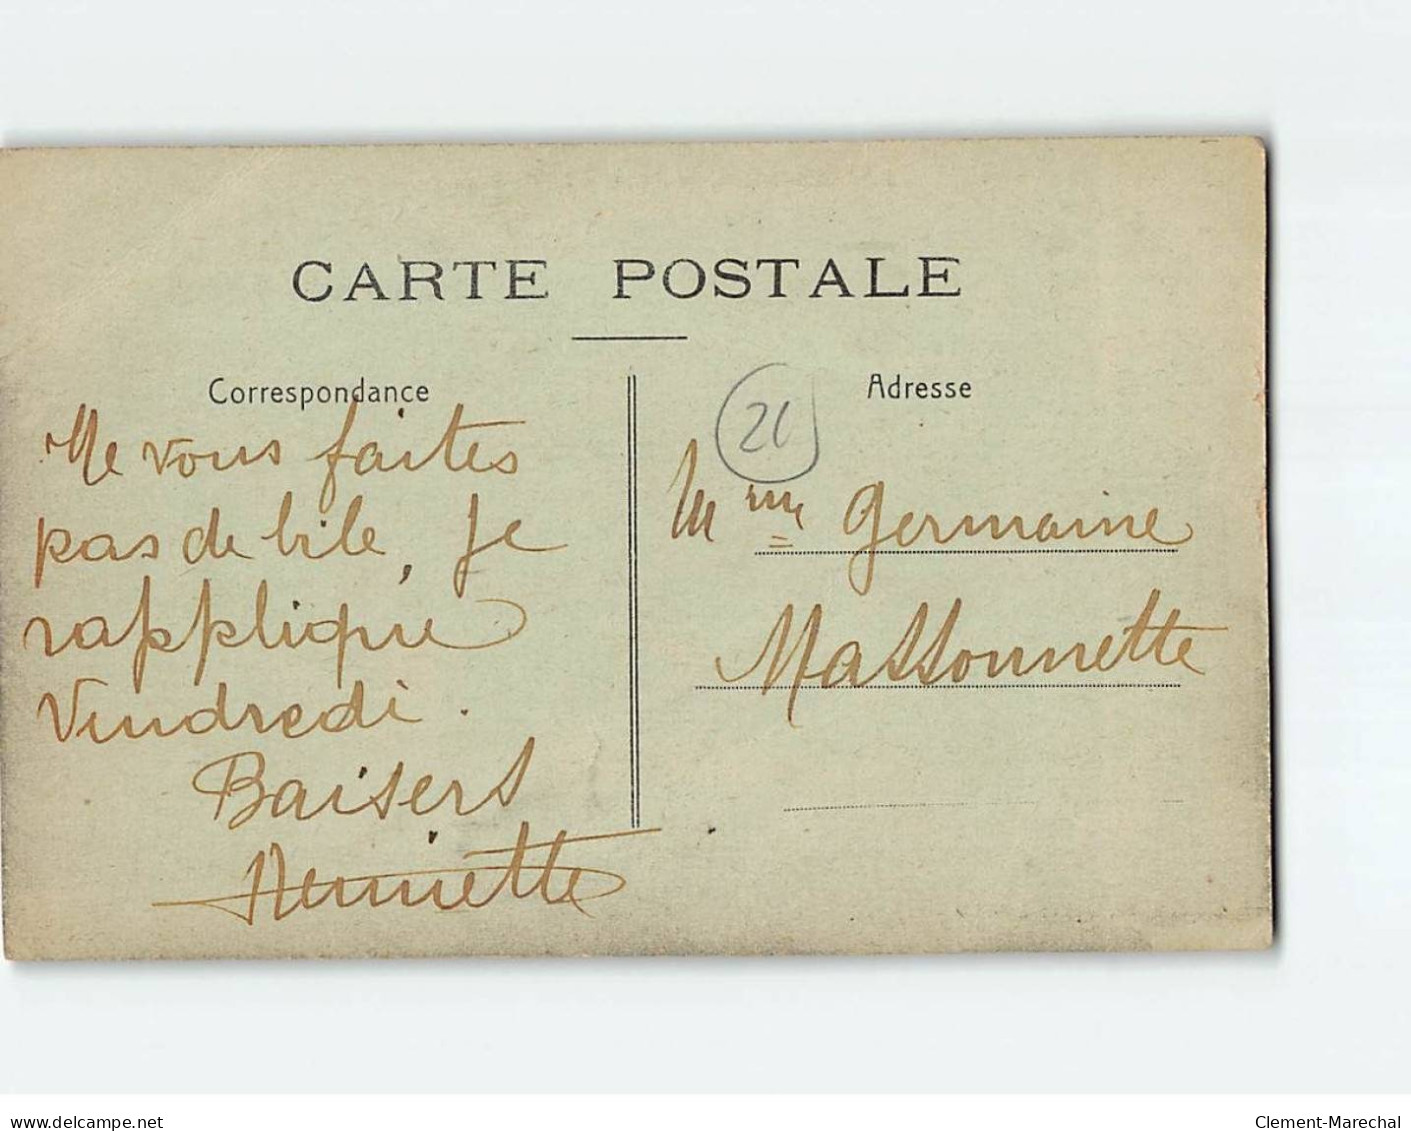 CARTE POSTALE
Correspondance
Ne vous faites
pas de bile, Je
rapplique
Vendredi.
Baisers
Henriette
Adresse
21
Mme Germaine
Massonnette
www.delcampe.net
Clement-Marechal